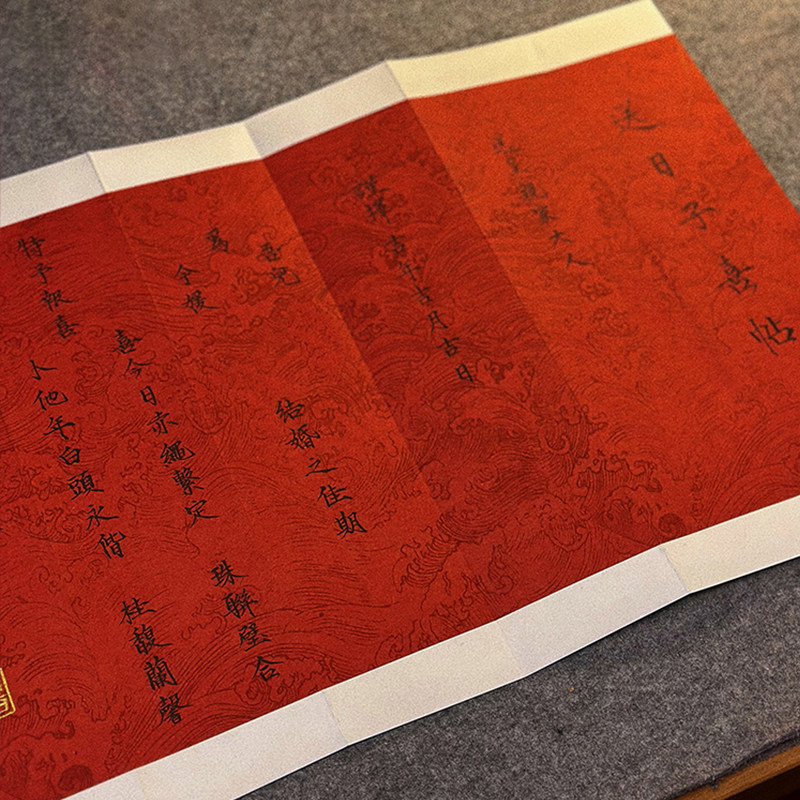 送日子喜帖
親家大人
謹擇 吉年吉月吉日
吾兒
為
令媛
結婚之佳期
喜今日赤繩繫定 珠聯璧合
卜他年白頭永偕 桂馥蘭馨
特予報喜